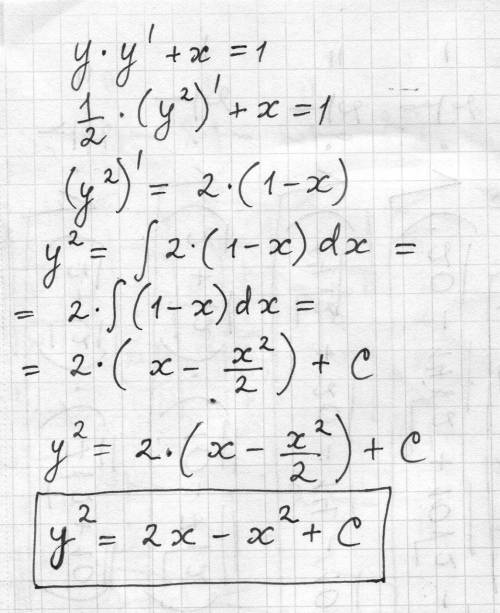 y · y' + x = 1
1/2 · (y²)' + x = 1
(y²)' = 2 · (1 - x)
y² = ∫ 2 · (1 - x) dx =
= 2 · ∫ (1 - x) dx =
= 2 · ( x - x²/2 ) + C
y² = 2 · ( x - x²/2 ) + C
y² = 2x - x² + C